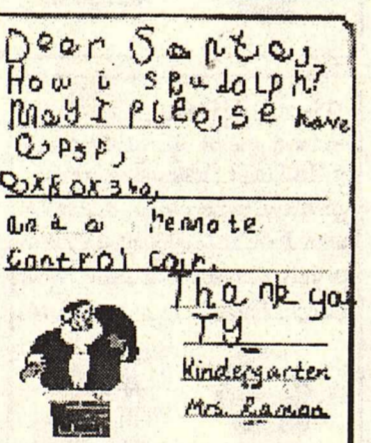 Dear Santa,
How is Rudolph?
May I please have
a psp,
a xbox 360,
and a remote
control car.
Thank you
TY
Kindergarten
Mrs. Eamon